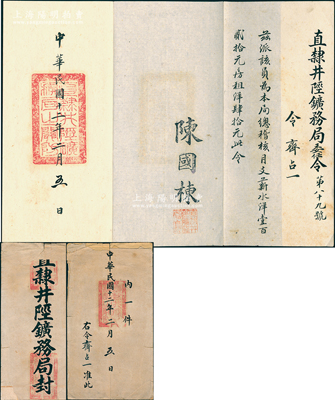 直隸井陘鑛務局委令 第八十九號
令 齊占一
茲派該員為本局總稽核月支薪水洋壹百
貳拾元房租洋肆拾元此令
陳國棟
中華民國十二年二月五日
直隸井陘鑛務局封
內一件
中華民國十二年二月五日
右令齊占一准此